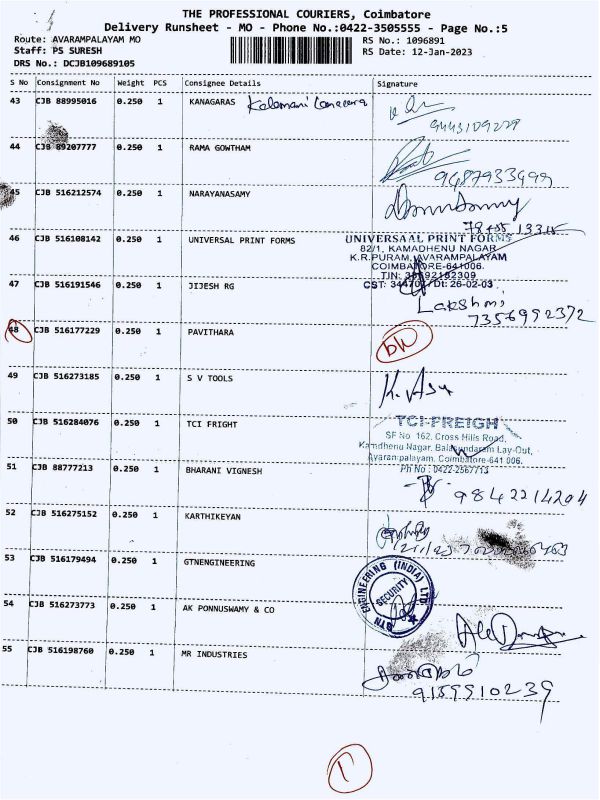 THE PROFESSIONAL COURIERS, Coimbatore
Delivery Runsheet - MO - Phone No.:0422-3505555 - Page No.:5
Route: AVARAMPALAYAM MO
RS No.: 1096891
Staff: PS SURESH
RS Date: 12-Jan-2023
DRS No.: DCJB109689105
S No Consignment No Weight PCS Consignee Details Signature
43 CJB 88995016 0.250 1 KANAGARAS
9443109229
44 CJB 89207777 0.250 1 RAMA GOWTHAM
9487933499
45 CJB 516212574 0.250 1 NARAYANASAMY
46 CJB 516108142 0.250 1 UNIVERSAL PRINT FORMS
UNIVERSAAL PRINT FORMS
82/1, KAMADHENU NAGAR
K.R.PURAM, AVARAMPALAYAM
COIMBATORE-641006.
CST: 344707/ Dt: 26-02-03
47 CJB 516191546 0.250 1 JIJESH RG
Lakshmi
7356992372
48 CJB 516177229 0.250 1 PAVITHARA
49 CJB 516273185 0.250 1 S V TOOLS
50 CJB 516284076 0.250 1 TCI FRIGHT
TCI-FREIGH
SF No 162, Cross Hills Road,
Kamdhenu Nagar, Balasundaram Lay-Out,
Avarampalayam, Coimbatore-641 006.
Ph No : 0422-2567713
51 CJB 88777213 0.250 1 BHARANI VIGNESH
9842214204
52 CJB 516275152 0.250 1 KARTHIKEYAN
53 CJB 516179494 0.250 1 GTNENGINEERING
GTN ENGINEERING (INDIA) LTD
SECURITY
54 CJB 516273773 0.250 1 AK PONNUSWAMY & CO
55 CJB 516198760 0.250 1 MR INDUSTRIES
9159910239
1